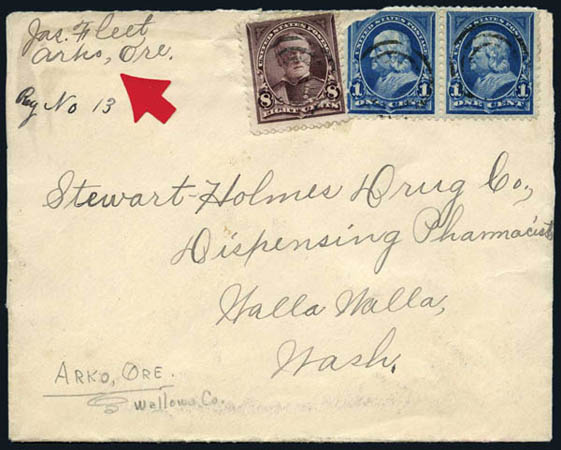 Jas. Fleet
Arko, Ore.
Reg No 13
UNITED STATES POSTAGE
8 8
EIGHT CENTS
1 1
ONE CENT
1 1
ONE CENT
Stewart-Holmes Drug Co.,
Dispensing Pharmacist
Walla Walla,
Wash.
ARKO, ORE.
Wallowa Co.